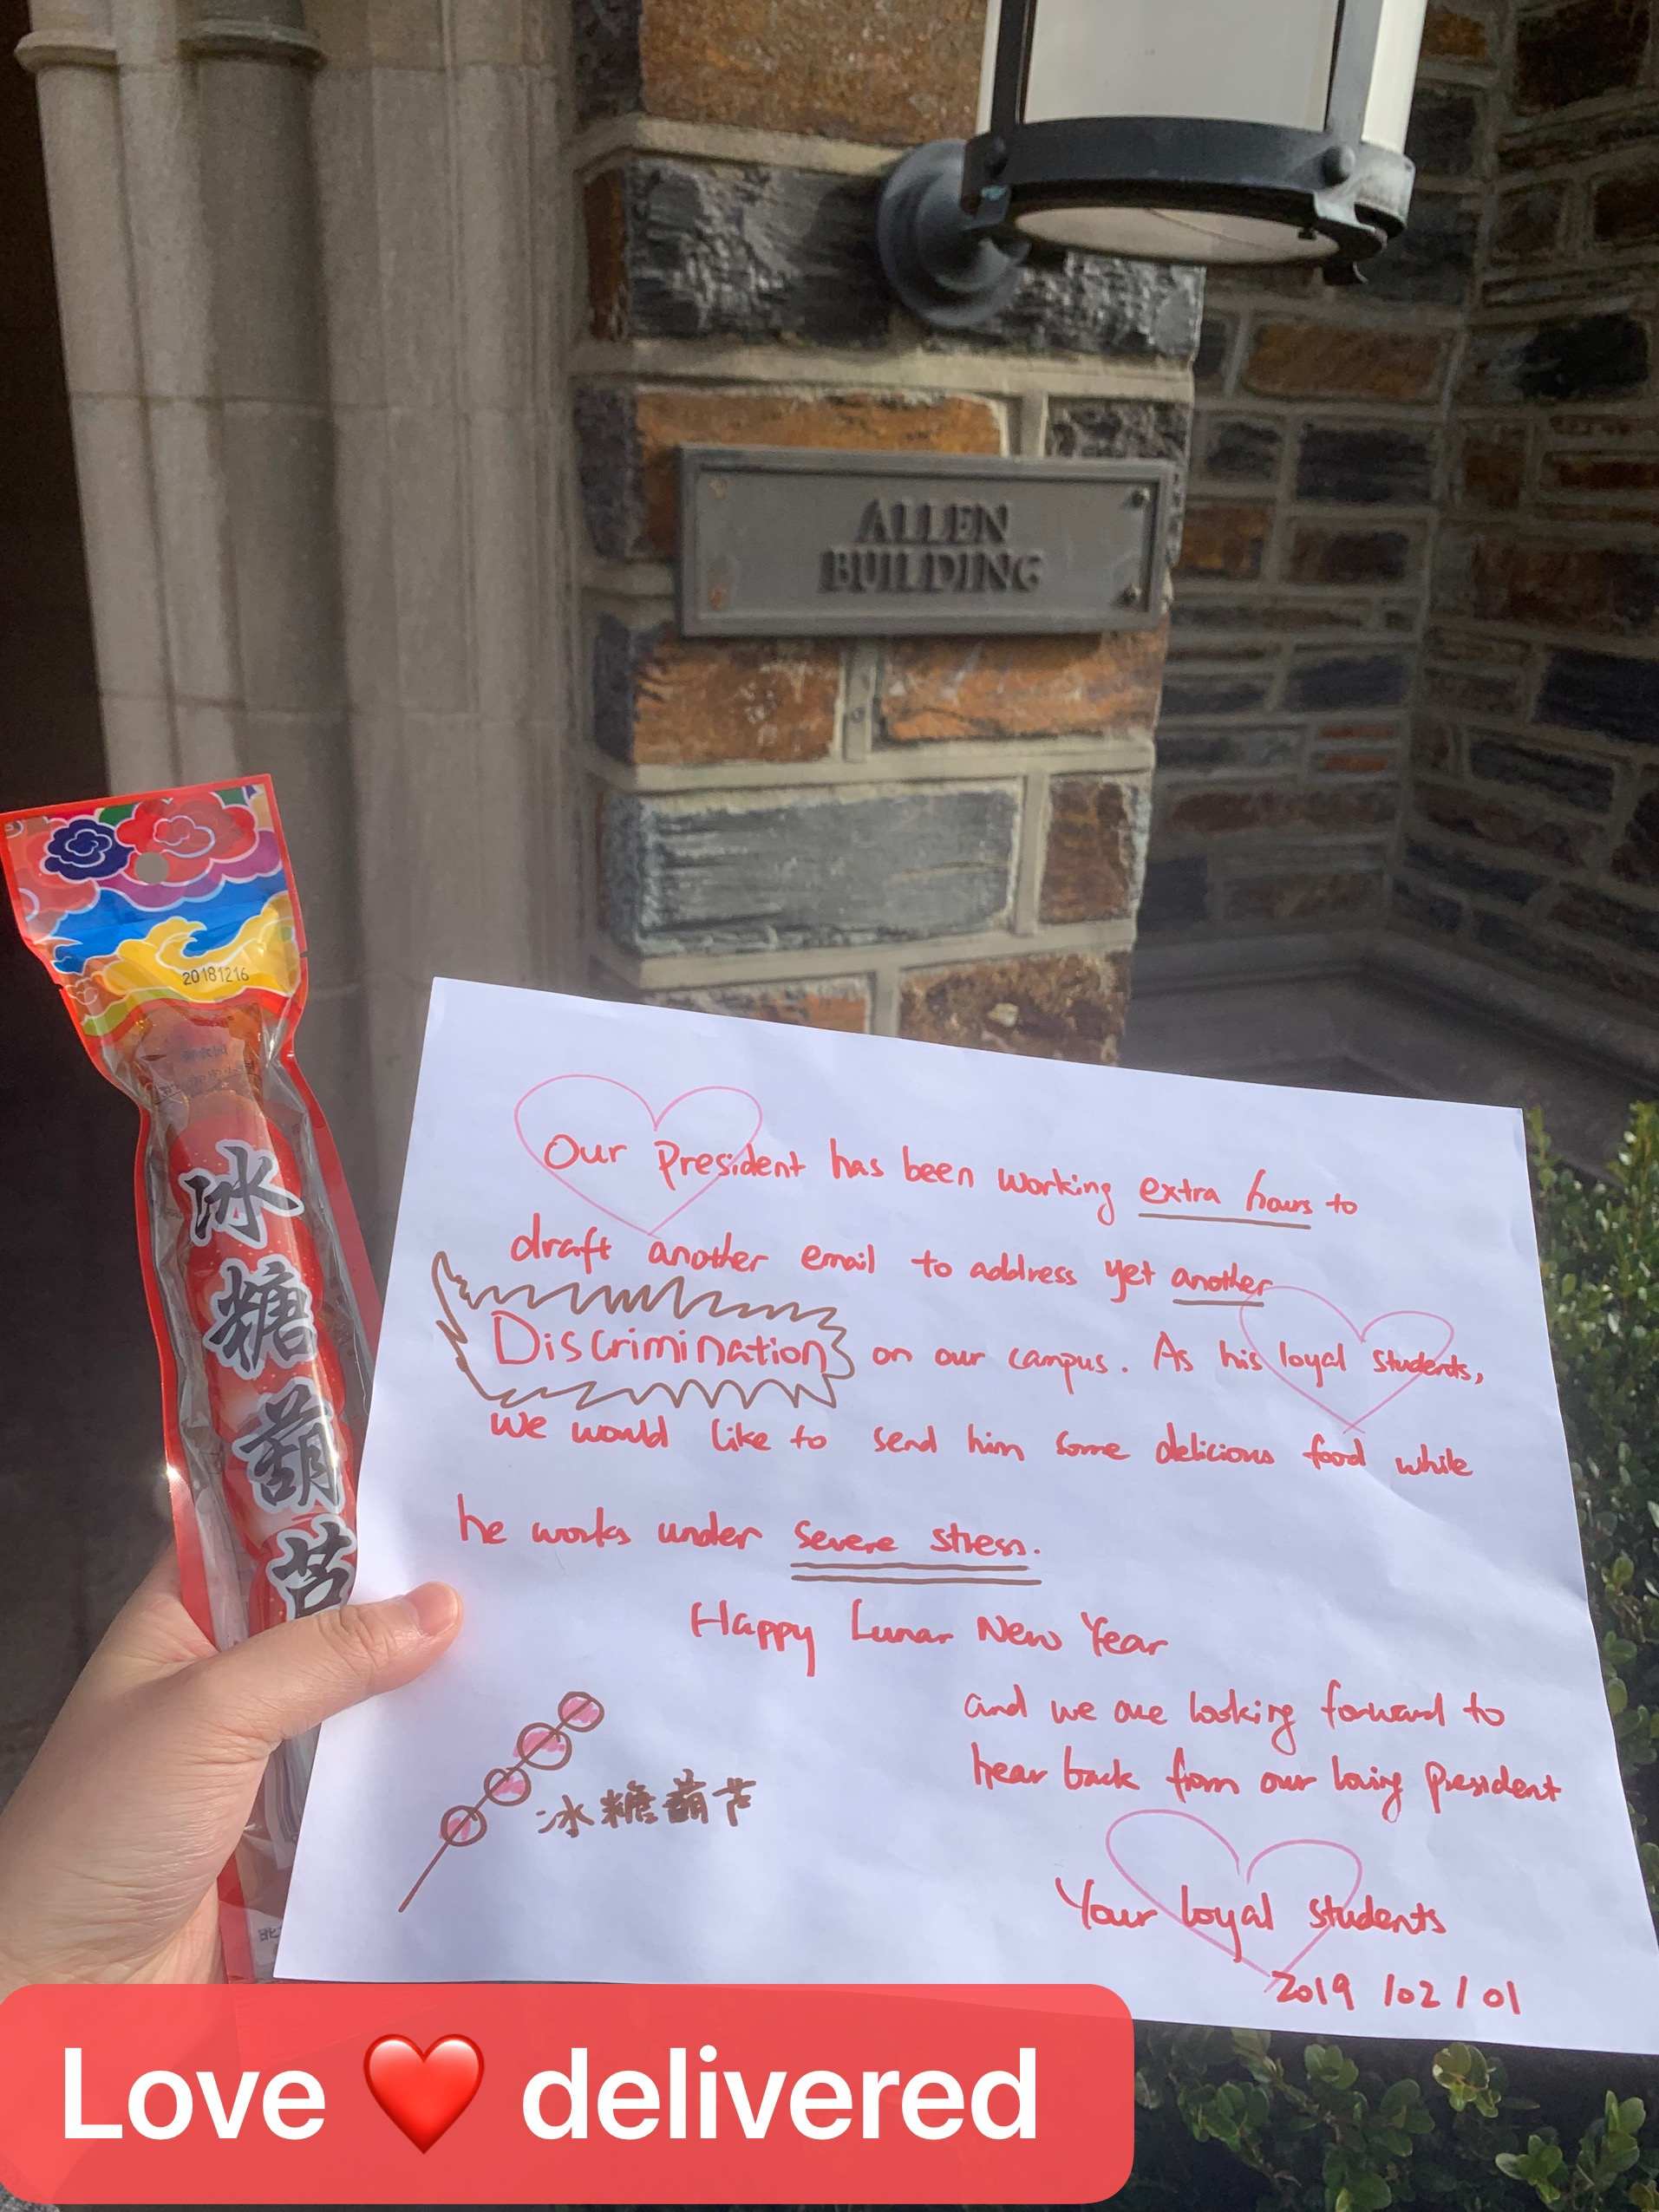 ALLEN
BUILDING
20181216
冰糖葫芦
Our President has been working extra hours to
draft another email to address yet another
Discrimination on our campus. As his loyal students,
we would like to send him some delicious food while
he works under severe stress.
Happy Lunar New Year
and we are looking forward to
hear back from our loving President
冰糖葫芦
Your loyal students
2019/02/01
Love ❤️ delivered